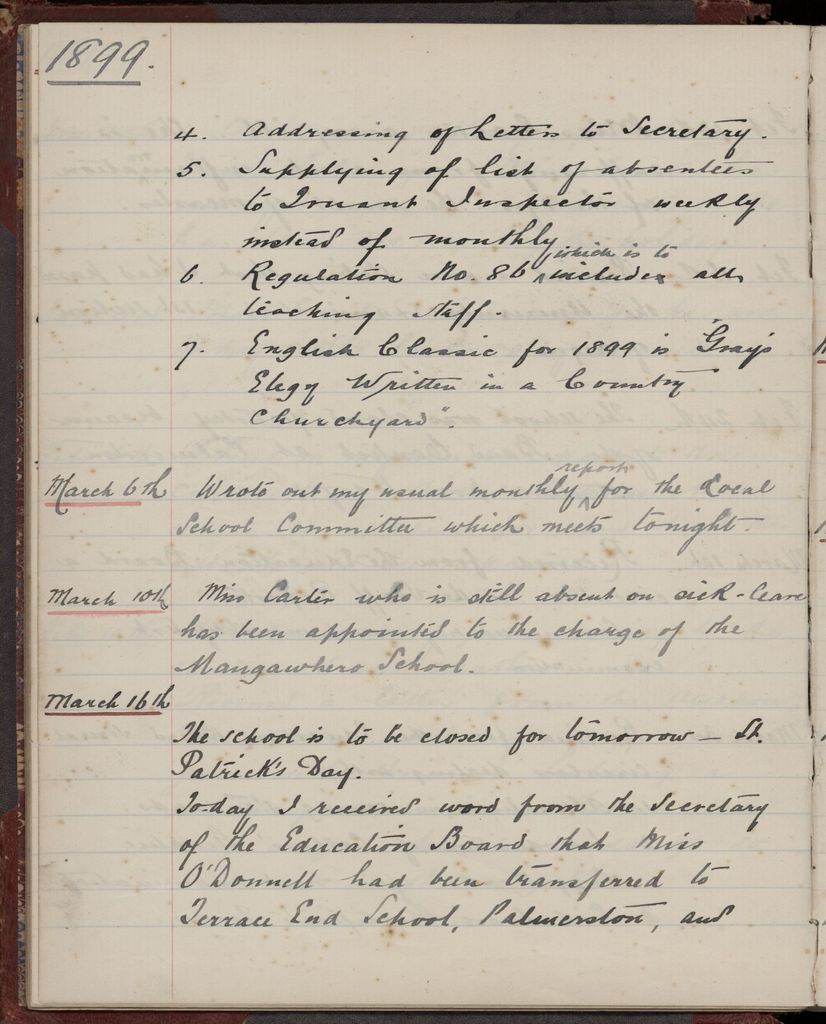 1899.
4. Addressing of Letters to Secretary.
5. Supplying of list of absentees
to Truant Inspector weekly
instead of monthly
which is to
6. Regulation No. 86 include all
teaching staff.
7. English Classic for 1899 is "Gray's
Elegy Written in a Country
Churchyard".
report
March 6th Wrote out my usual monthly for the Local
School Committee which meets tonight.
March 10th Miss Carter who is still absent on sick-leave
has been appointed to the charge of the
Mangawhero School.
March 16th
The school is to be closed for tomorrow – St.
Patrick's Day.
To-day I received word from the Secretary
of the Education Board that Miss
O'Donnell had been transferred to
Terrace End School, Palmerston, and